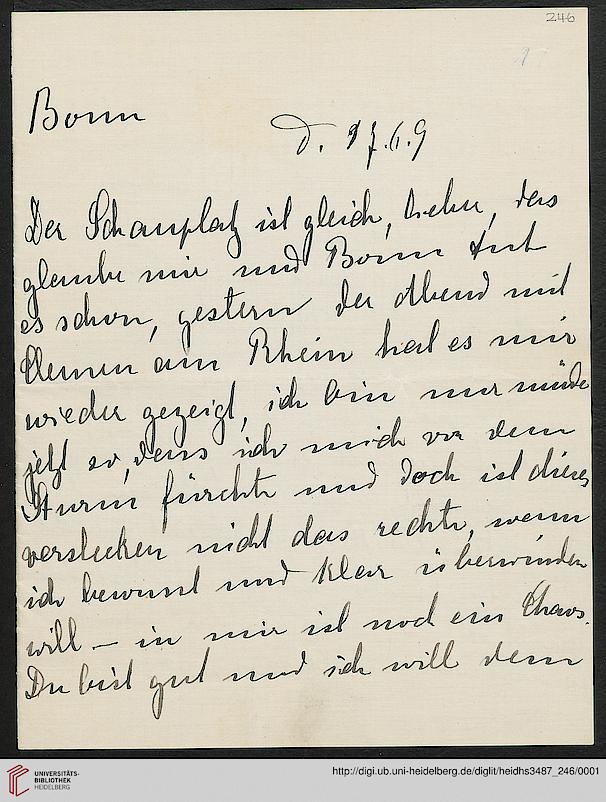 246
1
Bonn
d. 17.6.9
Der Schauplatz ist gleich, lieber, das
glaube mir und Bonn tut
es schon, gestern der Abend mit
Clemen am Rhein hat es mir
wieder gezeigt, ich bin nur müde
jetzt so, dass ich mich vor dem
Sturm fürchte und doch ist dieses
verstecken nicht das rechte, wenn
ich bewusst und klar überwinden
will – in mir ist noch ein Chaos.
Du bist gut und ich will dem
UNIVERSITÄTS-
BIBLIOTHEK
HEIDELBERG
http://digi.ub.uni-heidelberg.de/diglit/heidhs3487_246/0001